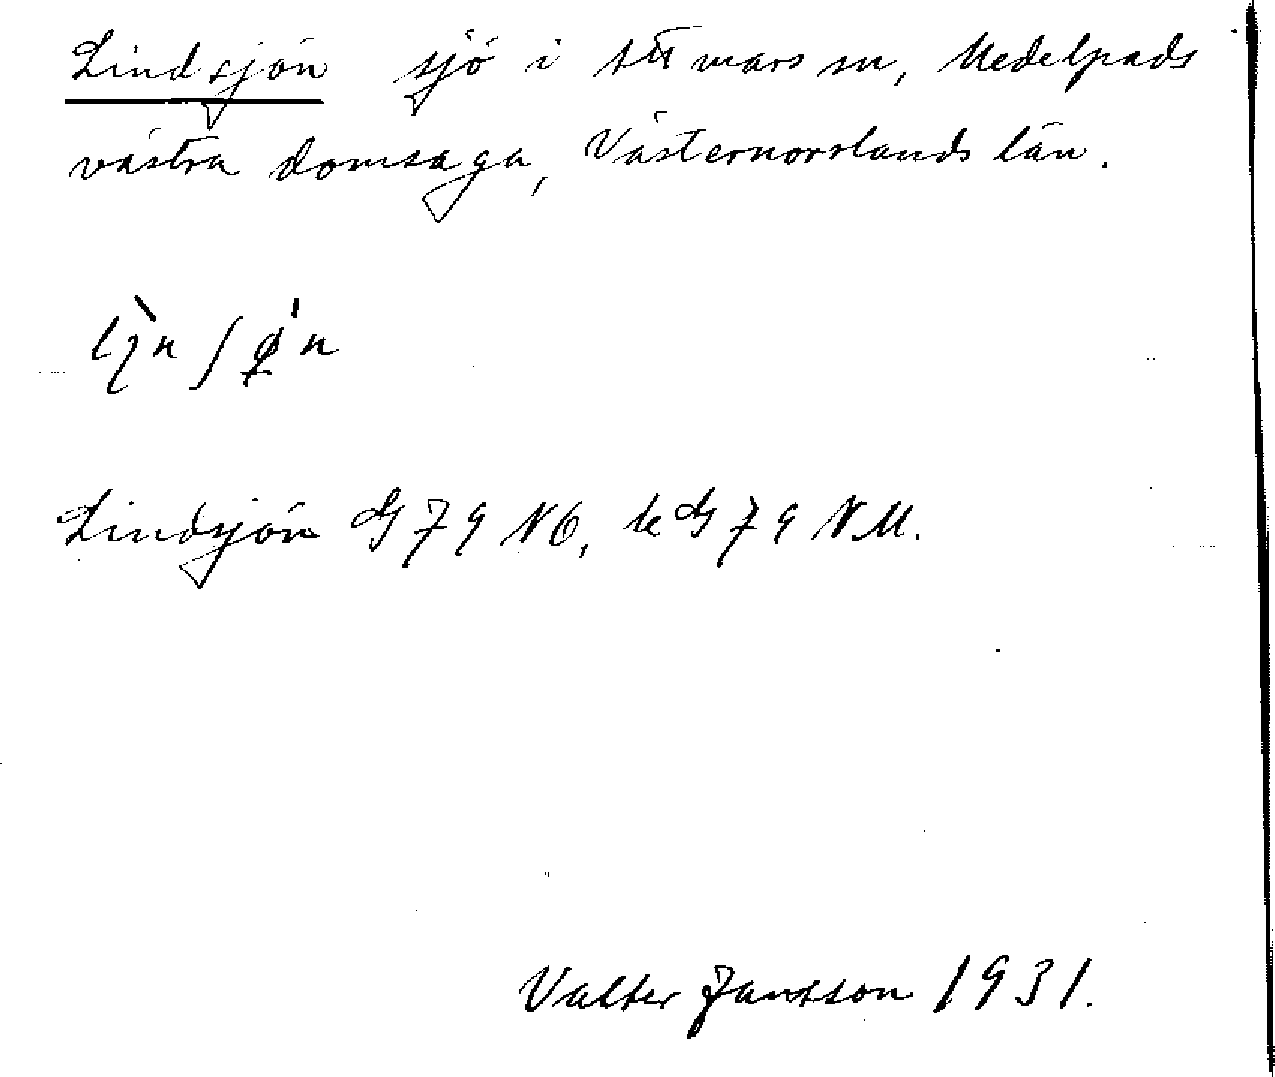 Lindsjön sjö i Attmars sn, Medelpads
västra domsaga, Västernorrlands län.
Lindsjön G 79 NO, k G 79 NM.
Valter Jansson 1931.